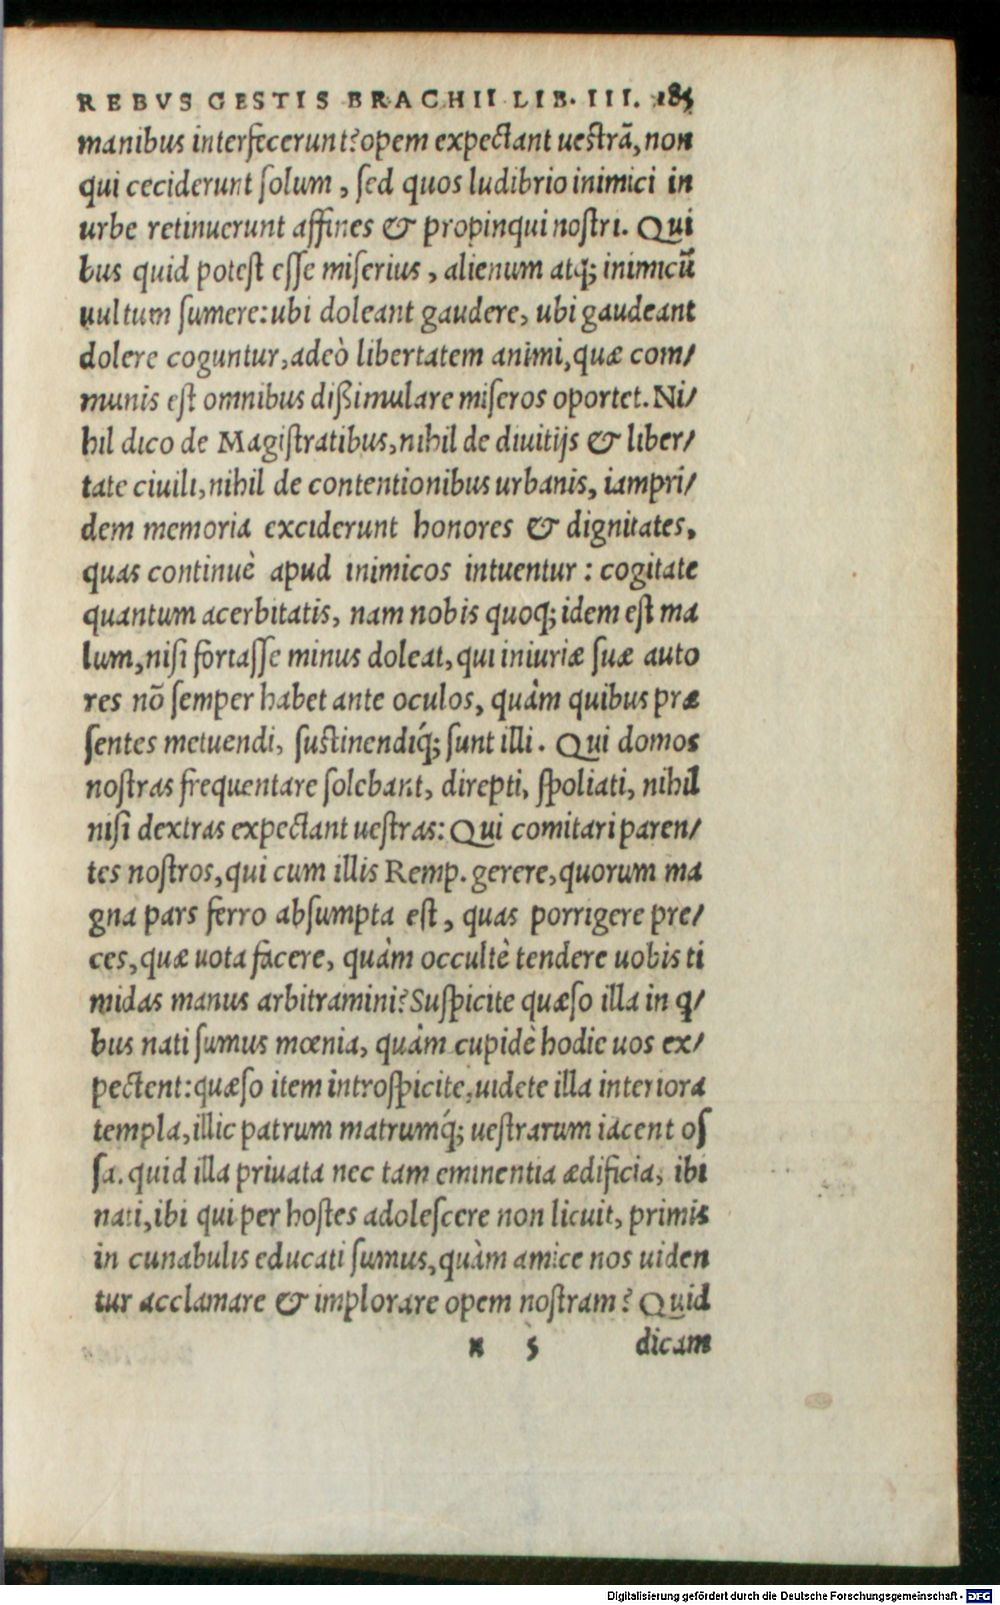 REBVS GESTIS BRACHII LIB. III. 185
manibus interfecerunt? opem expectant uestrã, non
qui ceciderunt ſolum, ſed quos ludibrio inimici in
urbe retinuerunt affines & propinqui noſtri. Qui
bus quid poteſt eſſe miſerius, alienum atq; inimicũ
uultum ſumere: ubi doleant gaudere, ubi gaudeant
dolere coguntur, adeò libertatem animi, quæ com/
munis eſt omnibus dißimulare miſeros oportet. Ni/
hil dico de Magiſtratibus, nihil de diuitijs & liber/
tate ciuili, nihil de contentionibus urbanis, iampri/
dem memoria exciderunt honores & dignitates,
quas continuè apud inimicos intuentur: cogitate
quantum acerbitatis, nam nobis quoq; idem eſt ma
lum, niſi fortaſſe minus doleat, qui iniuriæ ſuæ auto
res nõ ſemper habet ante oculos, quàm quibus præ
ſentes metuendi, ſuſtinendiq́; ſunt illi. Qui domos
noſtras frequentare ſolebant, direpti, ſpoliati, nihil
niſi dextras expectant ueſtras: Qui comitari paren/
tes noſtros, qui cum illis Remp. gerere, quorum ma
gna pars ferro abſumpta eſt, quas porrigere pre/
ces, quæ uota facere, quàm occultè tendere uobis ti
midas manus arbitramini? Suſpicite quæſo illa in q/
bus nati ſumus mœnia, quàm cupidè hodie uos ex/
pectent: quæſo item introſpicite, uidete illa interiora
templa, illic patrum matrumq́; ueſtrarum iacent oſ
ſa. quid illa priuata nec tam eminentia ædificia, ibi
nati, ibi qui per hoſtes adoleſcere non licuit, primis
in cunabulis educati ſumus, quàm amice nos uiden
tur acclamare & implorare opem noſtram? Quid
x 5 dicam
Digitalisierung gefördert durch die Deutsche Forschungsgemeinschaft - DFG